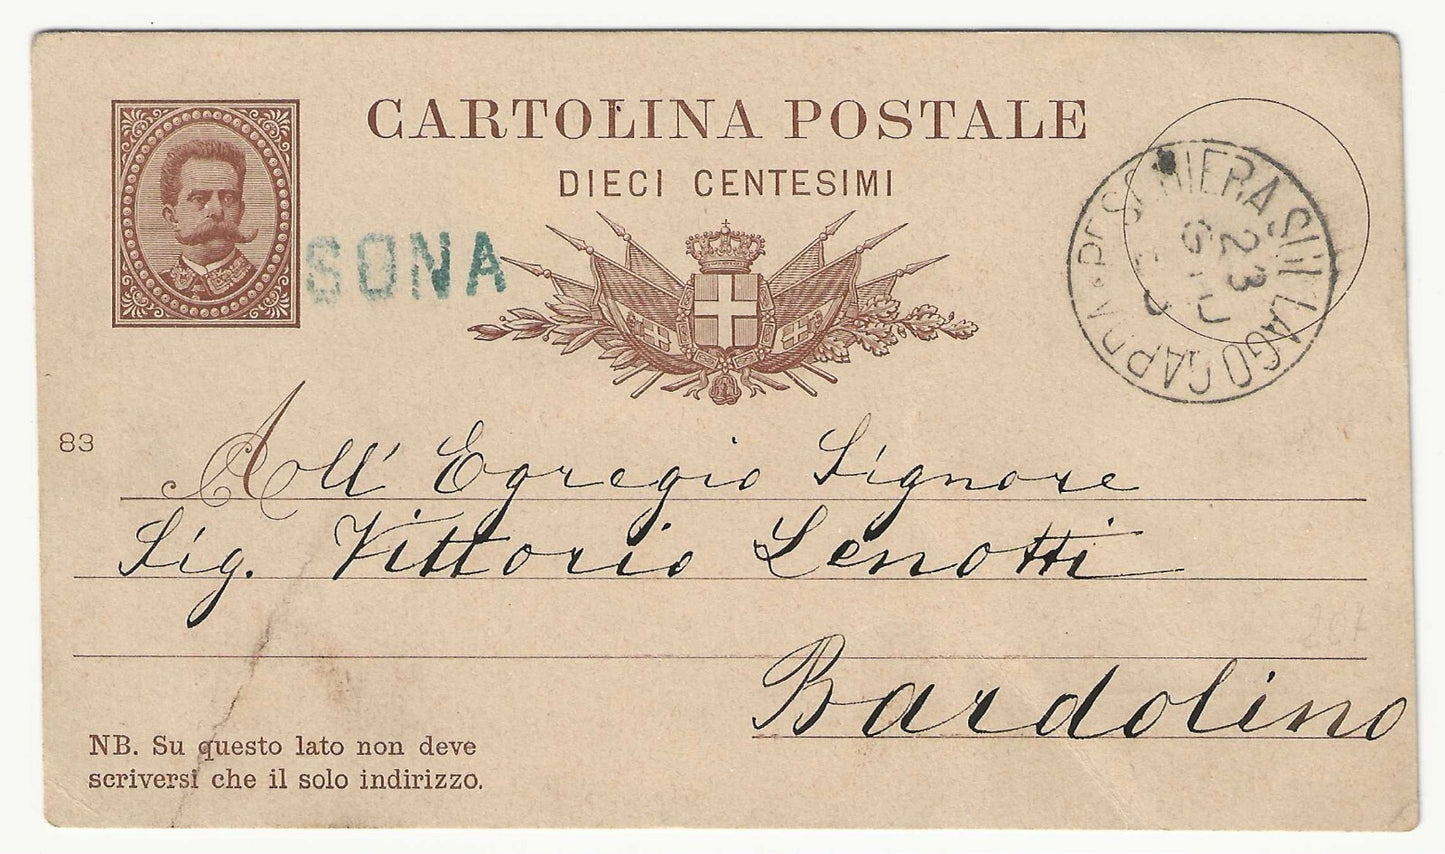 CARTOLINA POSTALE
DIECI CENTESIMI
SONA
PESCHIERA SUL LAGO GARDA
23
GIU
83
All' Egregio Signore
Sig. Vittorio Lenotti
Bardolino
NB. Su questo lato non deve
scriversi che il solo indirizzo.